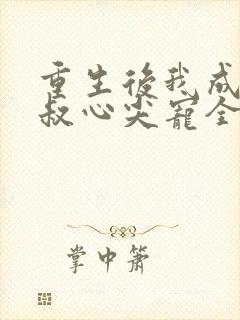 重生後我成
叔心尖寵全
掌中簫